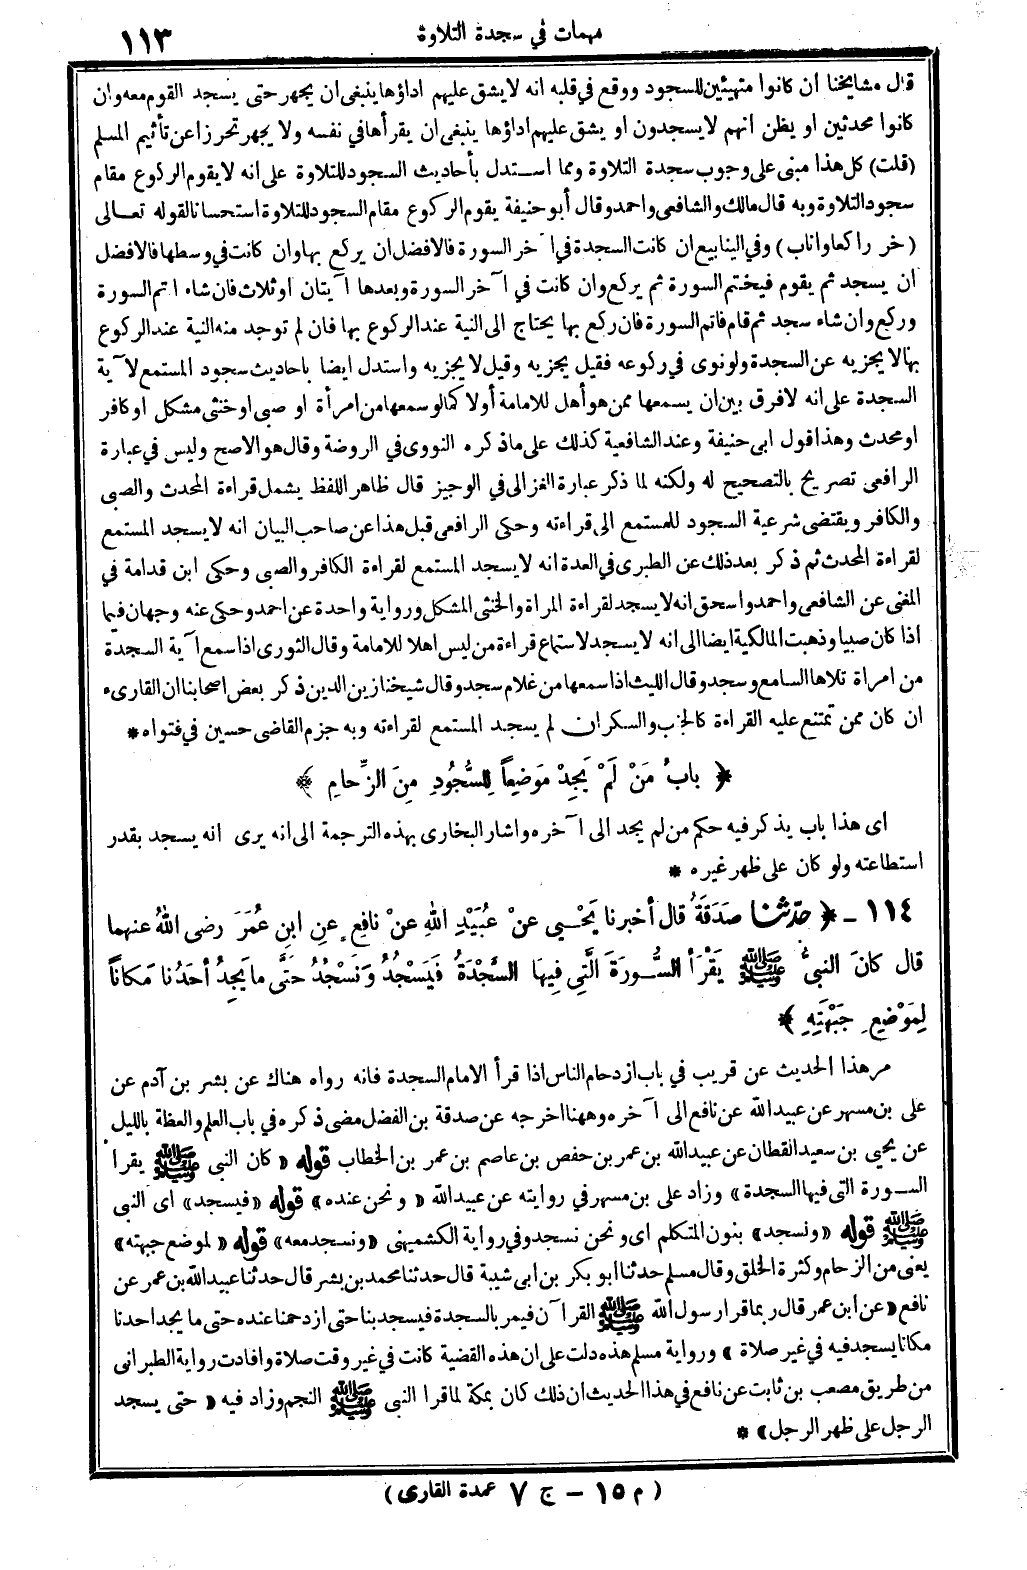 مهمات في سجدة التلاوة ١١٣
قال مشايخنا ان كانوا متهيئين للسجود ووقع في قلبه انه لا يشق عليهم اداؤها ينبغي ان يجهر حتى يسجد القوم معه وان
كانوا محدثين او يظن انهم لا يسجدون او يشق عليهم اداؤها ينبغي ان يقرأها في نفسه ولا يجهر تحرزا عن تأثيم المسلم
(قلت) كل هذا مبنى على وجوب سجدة التلاوة ومما استدل بأحاديث السجود للتلاوة على انه لا يقوم الركوع مقام
سجود التلاوة وبه قال مالك والشافعي واحمد وقال أبو حنيفة يقوم الركوع مقام السجود للتلاوة استحسانا لقوله تعالى
(خر راكعا واناب) وفي الينابيع ان كانت السجدة في آخر السورة فالافضل ان يركع بها وان كانت في وسطها فالافضل
ان يسجد ثم يقوم فيختم السورة ثم يركع وان كانت في آخر السورة وبعدها آيتان او ثلاث فان شاء اتم السورة
وركع وان شاء سجد ثم قام فاتم السورة فان ركع بها يحتاج الى النية عند الركوع بها فان لم توجد منه النية عند الركوع
بها لا يجزيه عن السجدة ولو نوى في ركوعه فقيل يجزيه وقيل لا يجزيه واستدل ايضا باحاديث سجود المستمع لآية
السجدة على انه لا فرق بين ان يسمعها ممن هو أهل للامامة أولا كما لو سمعها من امرأة او صبى او خنثى مشكل او كافر
او محدث وهذا قول ابى حنيفة وعند الشافعية كذلك على ما ذكره النووى في الروضة وقال هو الاصح وليس في عبارة
الرافعى تصريح بالتصحيح له ولكنه لما ذكر عبارة الغزالى في الوجيز قال ظاهر اللفظ يشمل قراءة المحدث والصبى
والكافر ويقتضى شرعية السجود للمستمع الى قراءته وحكى الرافعى قبل هذا عن صاحب البيان انه لا يسجد المستمع
لقراءة المحدث ثم ذكر بعد ذلك عن الطبرى في العدة انه لا يسجد المستمع لقراءة الكافر والصبى وحكى ابن قدامة في
المغنى عن الشافعى واحمد واسحق انه لا يسجد لقراءة المراة والخنثى المشكل ورواية واحدة عن احمد وحكى عنه وجهان فيما
اذا كان صبيا وذهبت المالكية ايضا الى انه لا يسجد لاستماع قراءة من ليس اهلا للامامة وقال الثورى اذا سمع آية السجدة
من امراة تلاها السامع وسجد وقال الليث اذا سمعها من غلام سجد وقال شيخنا زين الدين ذكر بعض اصحابنا ان القارىء
ان كان ممن تمتنع عليه القراءة كالجنب والسكران لم يسجد المستمع لقراءته وبه جزم القاضى حسين في فتواه *
﴿ بابُ مَنْ لَمْ يَجِدْ مَوضِعاً لِلسُّجُودِ مِنَ الزِّحامِ ﴾
اى هذا باب يذكر فيه حكم من لم يجد الى آخره واشار البخارى بهذه الترجمة الى انه يرى انه يسجد بقدر
استطاعته ولو كان على ظهر غيره *
١١٤ - ﴿ حدّثنا صَدَقَةُ قال أخبرنا يَحْيى عنْ عُبَيْدِ اللهِ عنْ نافِعٍ عنِ ابنِ عُمَرَ رضى اللهُ عنهما
قال كانَ النبىُّ ﷺ يَقْرَأُ السُّورَةَ الَّتِى فِيهَا السَّجْدَةُ فَيَسْجُدُ وَنَسْجُدُ حَتَّى ما يَجِدُ أحَدُنا مَكاناً
لِمَوْضِعِ جَبْهَتِهِ ﴾
مر هذا الحديث عن قريب في باب ازدحام الناس اذا قرأ الامام السجدة فانه رواه هناك عن بشر بن آدم عن
على بن مسهر عن عبيد الله عن نافع الى آخره وههنا اخرجه عن صدقة بن الفضل مضى ذكره في باب العلم والعظة بالليل
عن يحيى بن سعيد القطان عن عبيد الله بن عمر بن حفص بن عاصم بن عمر بن الخطاب قوله « كان النبى ﷺ يقرا
السورة التى فيها السجدة» وزاد على بن مسهر في روايته عن عبيد الله « ونحن عنده» قوله «فيسجد» اى النبى
ﷺ قوله «ونسجد» بنون المتكلم اى ونحن نسجد وفي رواية الكشميهنى «ونسجد معه» قوله « لموضع جبهته»
يعنى من الزحام وكثرة الخلق وقال مسلم حدثنا ابو بكر بن ابى شيبة قال حدثنا محمد بن بشر قال حدثنا عبيد الله بن عمر عن
نافع « عن ابن عمر قال ربما قرا رسول الله ﷺ القرآن فيمر بالسجدة فيسجد بنا حتى ازدحمنا عنده حتى ما يجد احدنا
مكانا يسجد فيه في غير صلاة » ورواية مسلم هذه دلت على ان هذه القضية كانت في غير وقت صلاة وافادت رواية الطبرانى
من طريق مصعب بن ثابت عن نافع في هذا الحديث ان ذلك كان بمكة لما قرا النبى ﷺ النجم وزاد فيه « حتى يسجد
الرجل على ظهر الرجل» *
(م ١٥ - ج ٧ عمدة القارى)